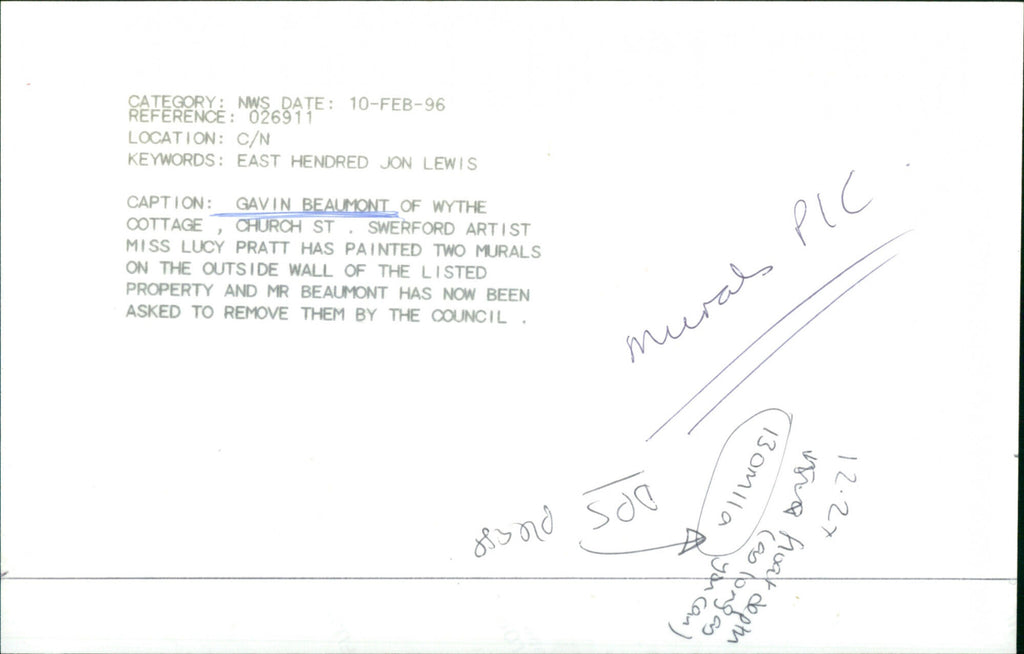 CATEGORY: NWS DATE: 10-FEB-96
REFERENCE: 026911
LOCATION: C/N
KEYWORDS: EAST HENDRED JON LEWIS
CAPTION: GAVIN BEAUMONT OF WYTHE
COTTAGE , CHURCH ST . SWERFORD ARTIST
MISS LUCY PRATT HAS PAINTED TWO MURALS
ON THE OUTSIDE WALL OF THE LISTED
PROPERTY AND MR BEAUMONT HAS NOW BEEN
ASKED TO REMOVE THEM BY THE COUNCIL .
Murals PIC
DPS please
depth
(as long as
you can)